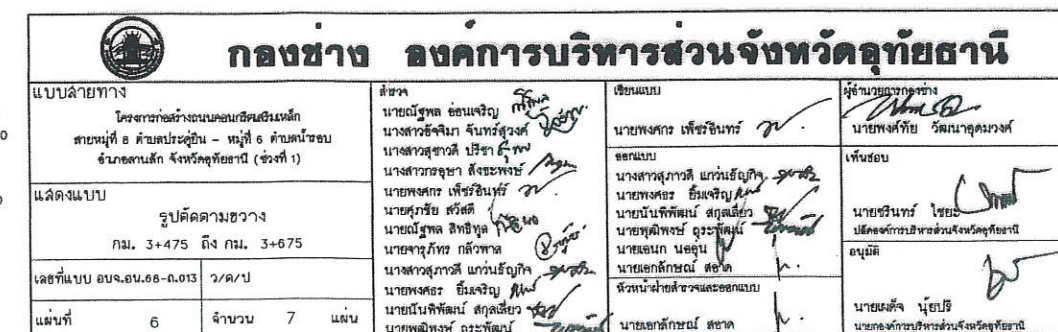 กองช่าง องค์การบริหารส่วนจังหวัดอุทัยธานี
แบบสายทาง
โครงการก่อสร้างถนนคอนกรีตเสริมเหล็ก
สายหมู่ที่ 8 ตำบลประดู่ยืน - หมู่ที่ 6 ตำบลน้ำรอบ
อำเภอลานสัก จังหวัดอุทัยธานี (ช่วงที่ 1)
แสดงแบบ
รูปตัดตามขวาง
กม. 3+475 ถึง กม. 3+675
เลขที่แบบ อบจ.อน.66-ถ.013 ว/ด/ป
แผ่นที่ 6 จำนวน 7 แผ่น
สำรวจ
นายณัฐพล อ่อนเจริญ
นางสาวอัจจิมา จันทร์สุวงค์
นางสาวสุชาวดี ปรีชา
นางสาวกรอุษา สังขะพงษ์
นายพงศกร เพ็ชร์อินทร์
นายศุภชัย สวัสดี
นายณัฐพล สิทธิทูล
นายจารุภัทร กลัวพาล
นางสาวสุภาวดี แกว่นธัญกิจ
นายพงศธร ยิ้มเจริญ
นายนันพิพัฒน์ สกุลเสี่ยว
นายพุฒิพงษ์ ถุระพัฒน์
เขียนแบบ
นายพงศกร เพ็ชร์อินทร์
ออกแบบ
นางสาวสุภาวดี แกว่นธัญกิจ
นายพงศธร ยิ้มเจริญ
นายนันพิพัฒน์ สกุลเสี่ยว
นายพุฒิพงษ์ ถุระพัฒน์
นายเอนก นออุ่น
นายเอกลักษณ์ สอาด
หัวหน้าฝ่ายสำรวจและออกแบบ
นายเอกลักษณ์ สอาด
ผู้อำนวยการกองช่าง
นายพงศ์ทัย วัฒนาอุดมวงค์
เห็นชอบ
นายชรินทร์ ไชยะ
ปลัดองค์การบริหารส่วนจังหวัดอุทัยธานี
อนุมัติ
นายเผด็จ นุ้ยปรี
นายกองค์การบริหารส่วนจังหวัดอุทัยธานี